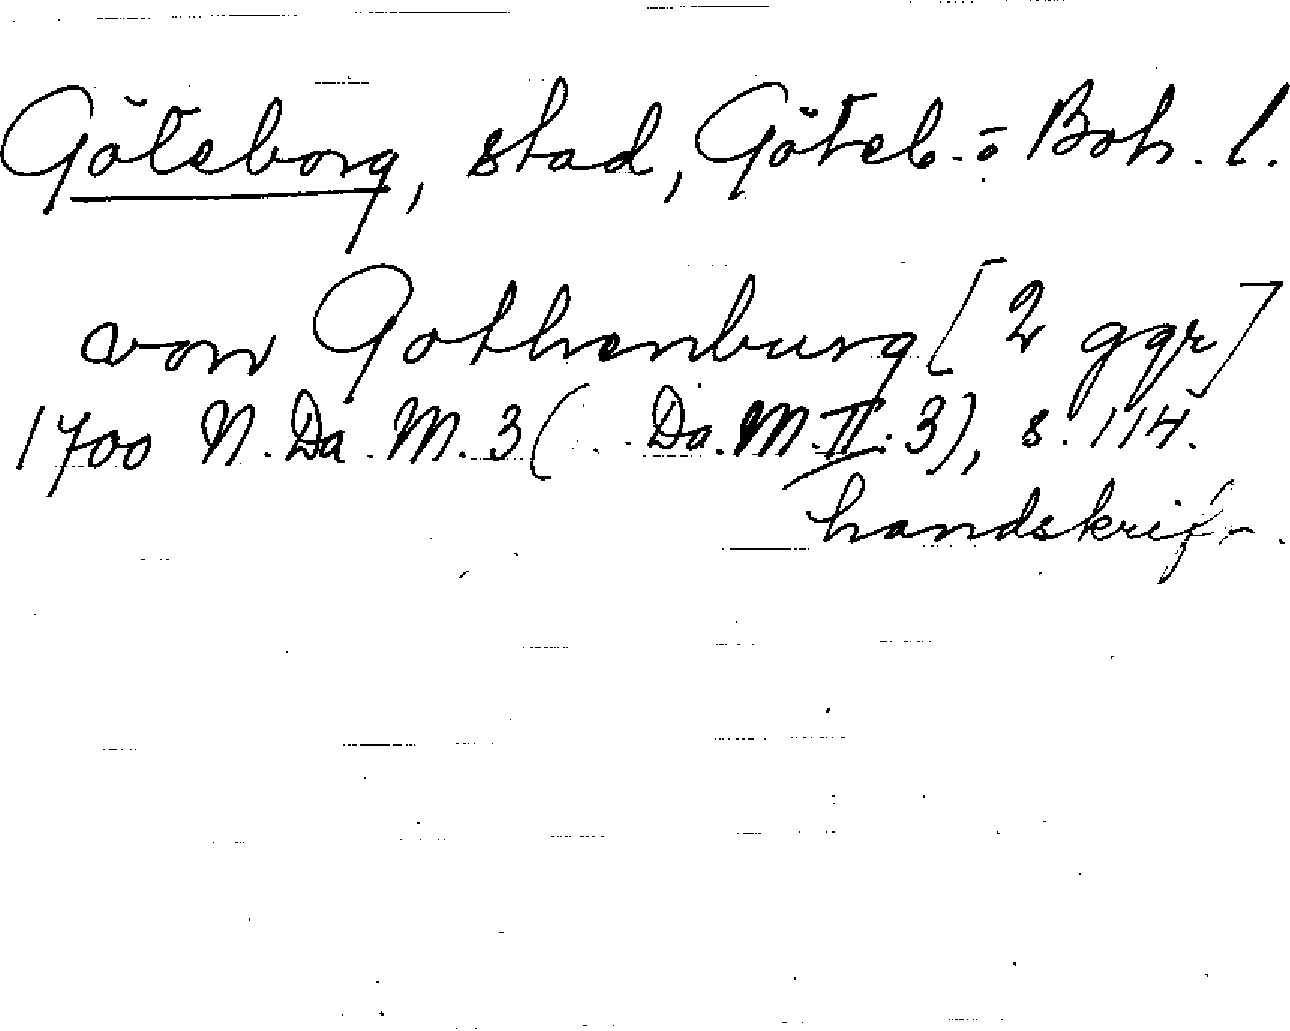 Göteborg, stad, Göteb.- o Boh. l.
von Gothenburg [2 ggr]
1700 N. Da. M. 3 (. . Da. M. II. 3), s. 114.
handskrift.